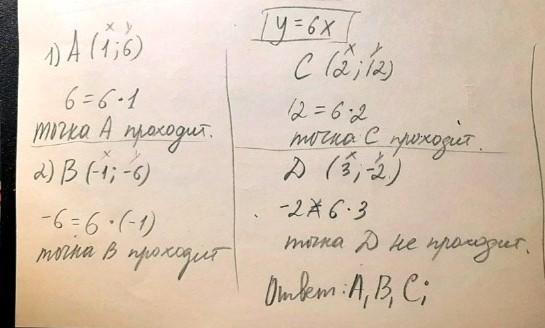 y=6x
x y
1) A (1; 6)
6=6·1
точка А проходит.
x y
2) B (-1; -6)
-6=6·(-1)
точка В проходит
x y
C (2; 12)
12=6·2
точка С проходит.
x y
D (3; -2)
-2≠6·3
точка D не проходит.
Ответ: A, B, C;